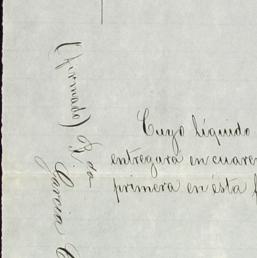 (firmado) B.do
Garcia
Cuyo líquido
entregará en cuaren
primera en ésta f